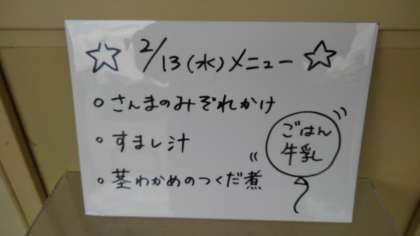 ☆ 2/13(水)メニュー ☆
○ さんまのみぞれかけ
○ すまし汁
○ 茎わかめのつくだ煮
ごはん
牛乳